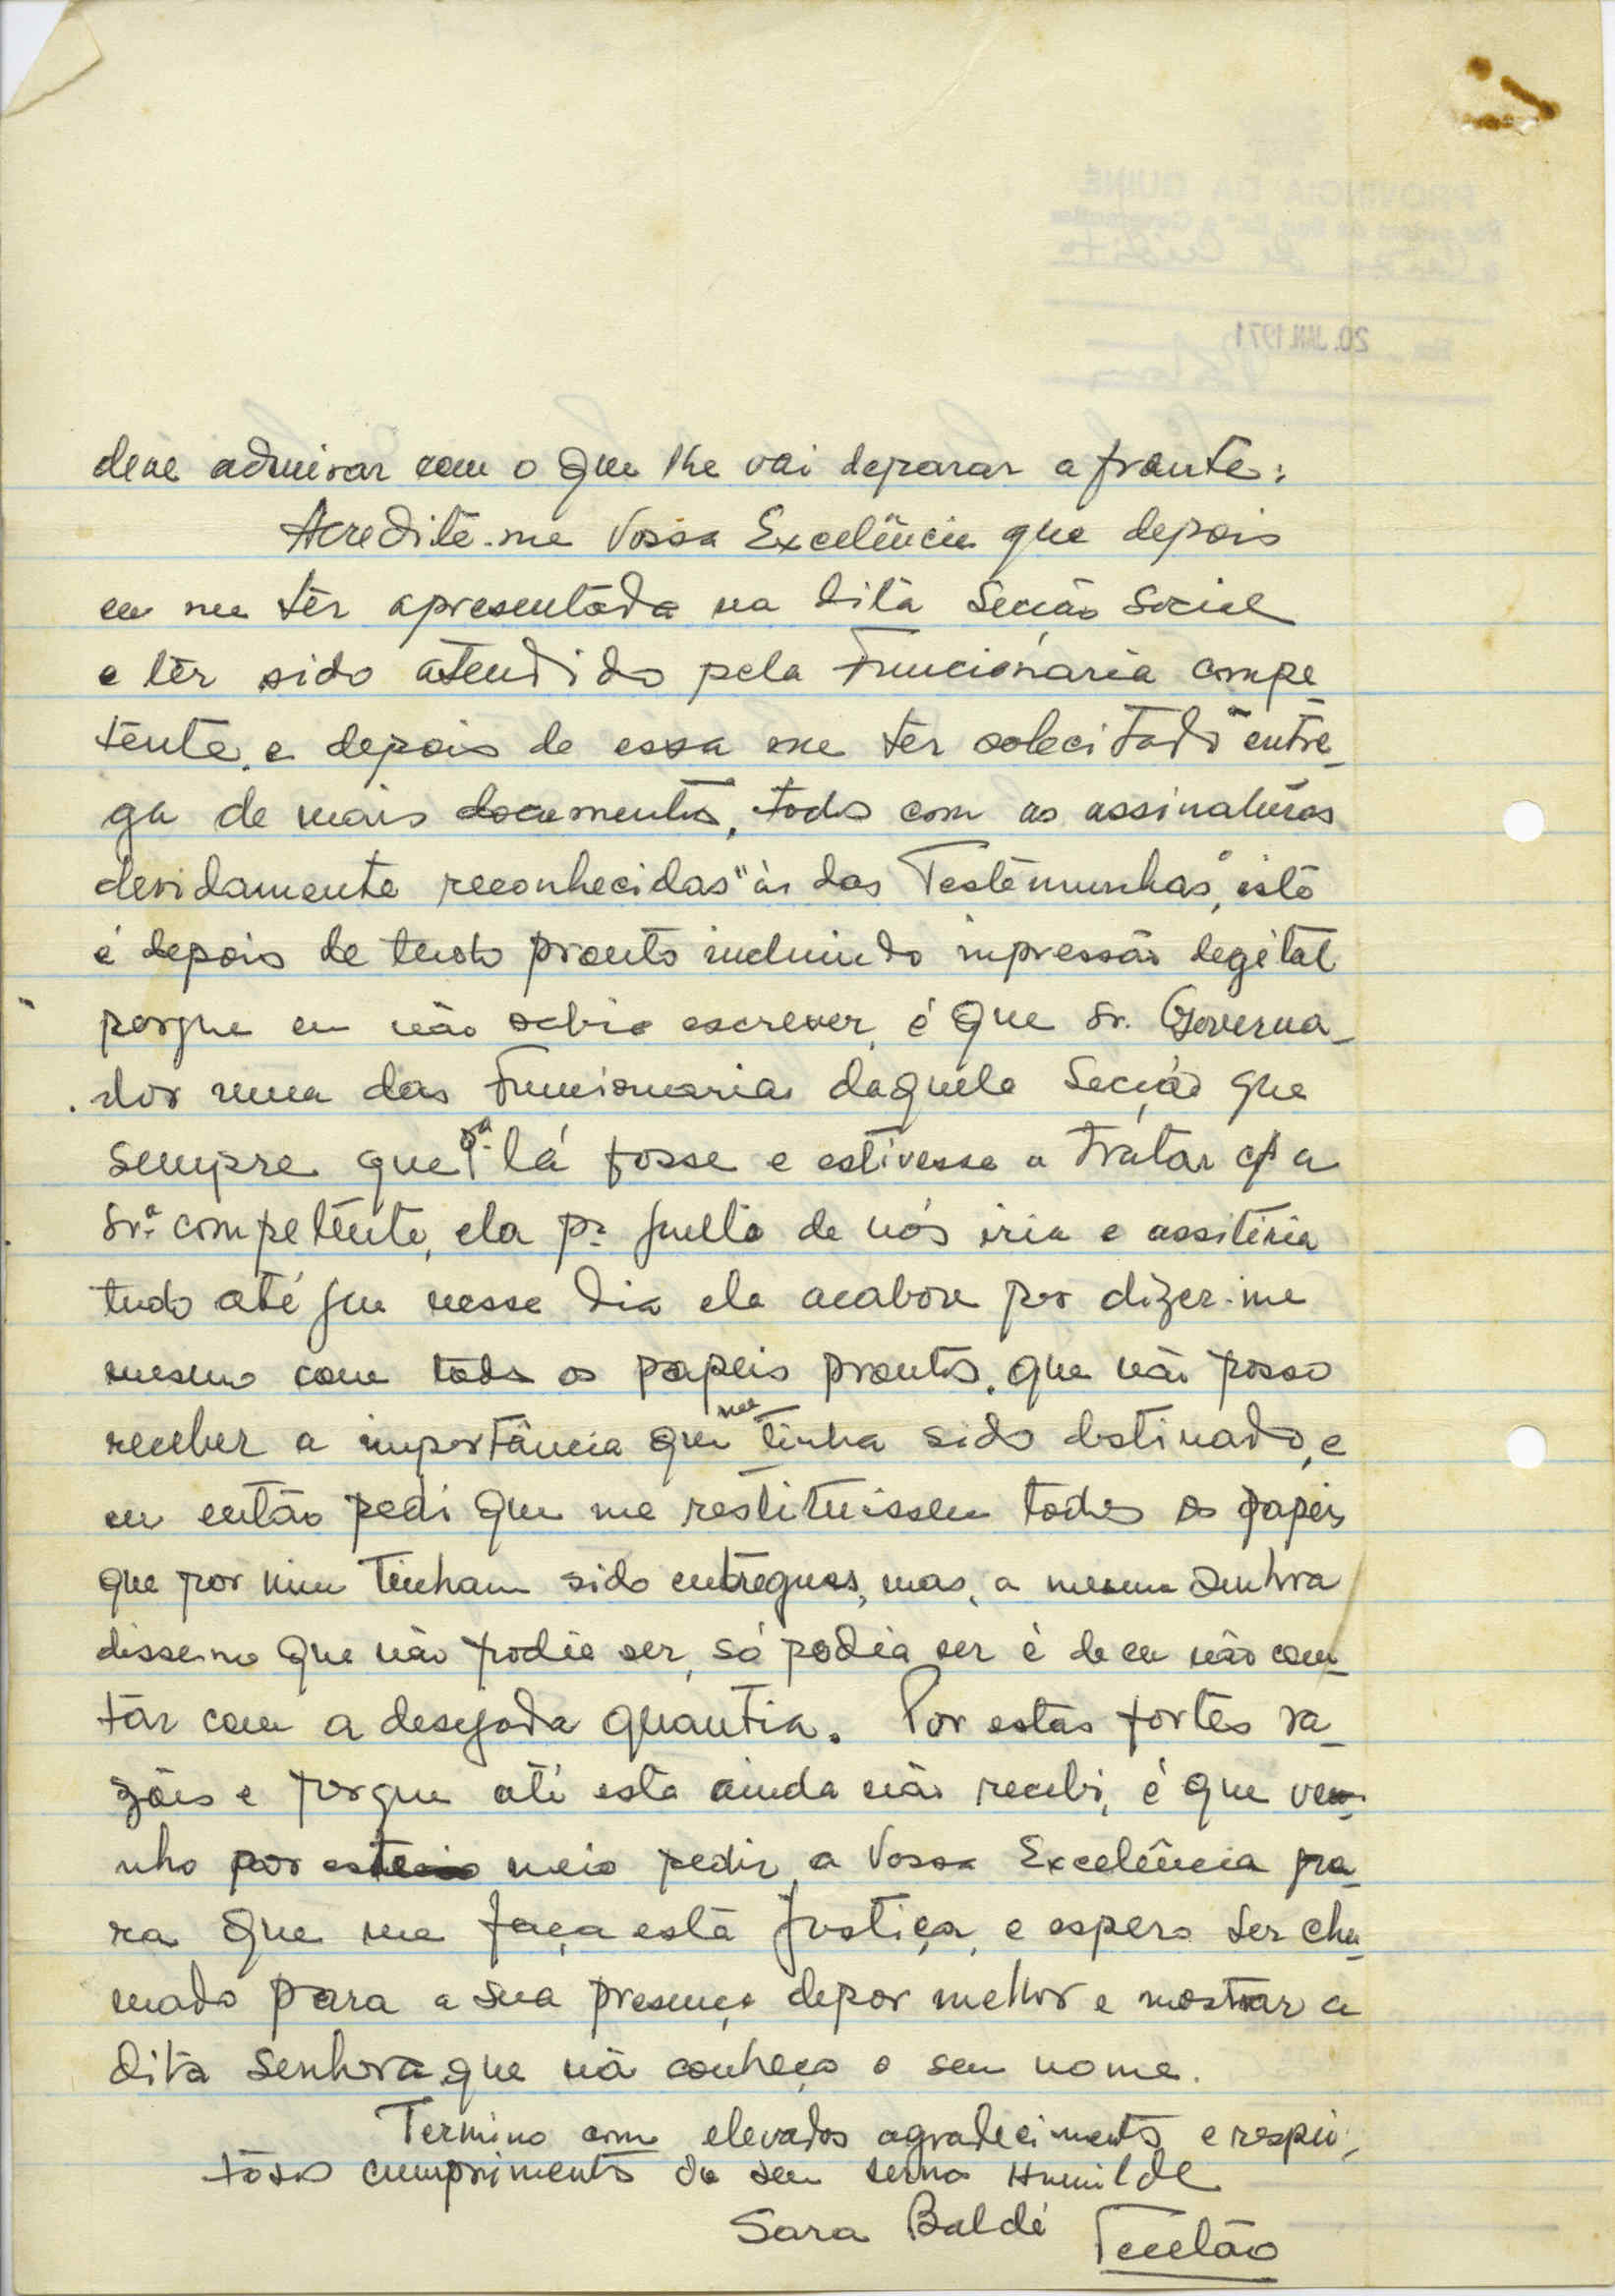 PROVINCIA DA GUINÉ
20. JAN. 1971
deve admirar com o que lhe vai deparar a frante:
Acredite-me Vossa Excelência que depois
eu me têr apresentada na dita Secção Social
e têr sido atendido pela Funcionária compe-
tente, e depois de essa me têr solecitado entre-
ga de mais documentos, todos com as assinaturas
devidamente reconhecidas "às das Testemunhas", isto
é depois de tudo pronto incluindo impressão degital
porque eu não sabia escrever, é que Sr. Governa-
dor uma das Funcionarias daquela Secção que
sempre que lá fosse e estivesse a tratar c/ a
Sr.ª competente, ela p.ª junto de nós iria e assitiria
tudo até que nesse dia ela acabou por dizer-me
mesmo com todos os papeis prontos, que não posso
receber a importância que me tinha sido destinado, e
eu então pedi que me restituissem todos os papeis
que por mim tinham sido entregues, mas, a mesma Senhora
disse-me que não podia ser, só podia ser é de eu não con-
tar com a desejada quantia. Por estas fortes ra-
zões e porque até esta ainda não recebi, é que ve-
nho por este meio pedir a Vossa Excelência pa-
ra que me faça esta Justiça, e espero ser cha-
mado para a sua presença depor melhor e mostrar a
dita Senhora que não conheço o seu nome.
Termino com elevados agradecimentos e respei-
tosos cumprimentos do seu servo Humilde
Sara Baldé